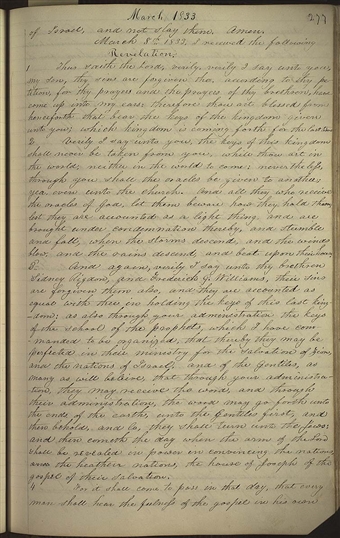 March, 1833
277
of Israel, and not slay thine. Amen.
March 8th 1833. I received the following
Revelation:
1 Thus saith the Lord, verily, verily I say unto you,
my son, thy sins are forgiven thee, according to thy pe-
tition, for thy prayers and the prayers of thy brethren, have
come up into my ears: therefore thou art blessed from
henceforth that bear the keys of the kingdom given
unto you; which kingdom is coming forth for the last time.
2. Verily I say unto you, the keys of this kingdom
shall never be taken from you, while thou art in
the world, neither in the world to come; nevertheless,
through you shall the oracles be given to another,
yea even unto the church. And all they who receive
the oracles of God, let them beware how they hold them,
lest they are accounted as a light thing, and are
brought under condemnation thereby, and stumble
and fall, when the storms descend, and the winds
blow, and the rains descend, and beat upon their house.
3. And again, verily I say unto thy brethren
Sidney Rigdon, and Frederick G. Williams, their sins
are forgiven them also, and they are accounted as
equal with thee in holding the keys of this last king-
dom; as also through your administration the keys
of the school of the prophets, which I have com-
manded to be organized, that thereby they may be
perfected in their ministry for the salvation of Zion,
and the nations of Israel, and of the Gentiles, as
many as will believe, that through your administra-
tion, they may receive the word, and through
their administration, the word may go forth unto
the ends of the earth, unto the Gentiles first, and
then behold, and lo, they shall turn unto the Jews;
and then cometh the day when the arm of the Lord
shall be revealed in power in convincing the nations,
the heathen nations, the house of Joseph, of the
gospel of their salvation.
4 For it shall come to pass in that day, that every
man shall hear the fulness of the gospel in his own